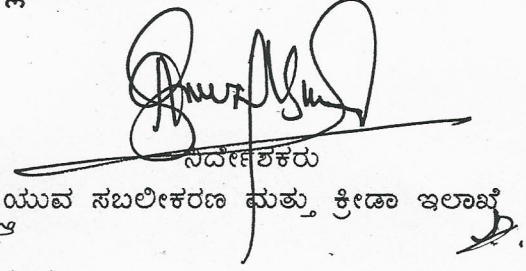 ನಿರ್ದೇಶಕರು
ಯುವ ಸಬಲೀಕರಣ ಮತ್ತು ಕ್ರೀಡಾ ಇಲಾಖೆ